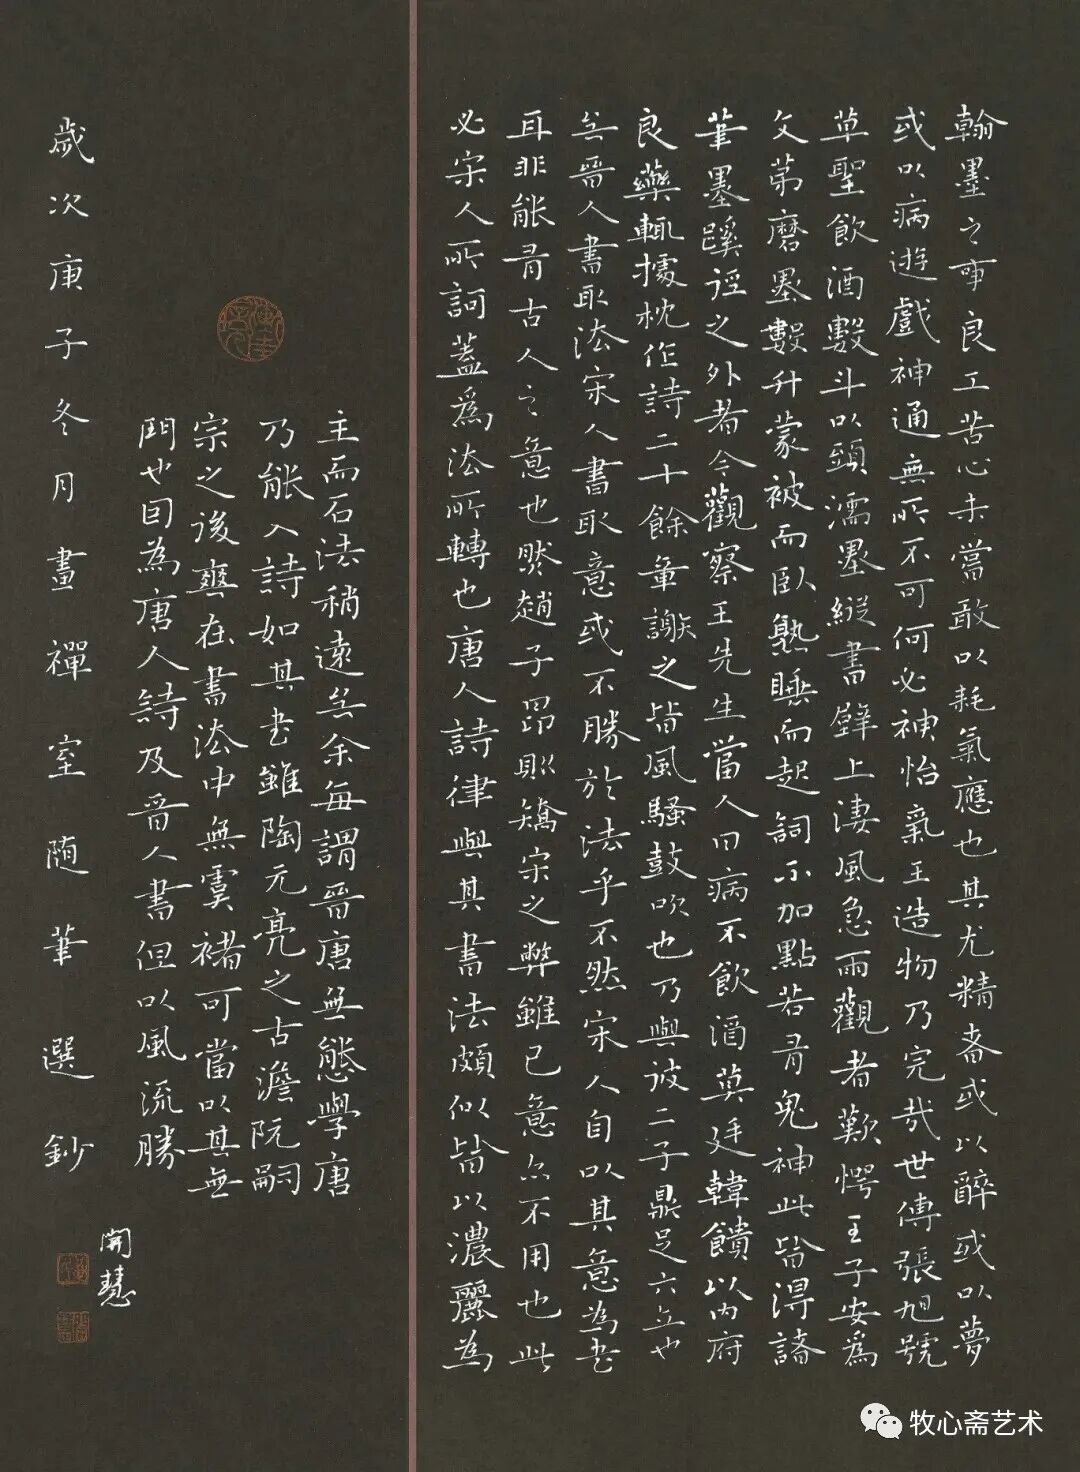 翰墨之事良工苦心未嘗敢以耗氣應也其尤精者或以醉或以夢
或以病遊戲神通無所不可何必神怡氣王造物乃完哉世傳張旭號
草聖飲酒數斗以頭濡墨縱書壁上淒風急雨觀者歎愕王子安為
文第磨墨數升蒙被而臥熟睡而起詞不加點若有鬼神此皆得諸
筆墨蹊徑之外者今觀察王先生當人日病不飲酒莫廷韓饋以內府
良藥輒據枕作詩二十餘章謝之皆風騷鼓吹也乃與彼二子鼎足六立也
無晉人書取法宋人書取意或不勝於法乎不然宋人自以其意為書
耳非能有古人之意也然趙子昂則矯宋之弊雖已意亦不用也此
必宋人所訶蓋為法所轉也唐人詩律與其書法頗似皆以濃麗為
主而石法稍遠矣余每謂晉唐無態學唐
乃能入詩如其書雖陶元亮之古澹阮嗣
宗之後爽在書法中無虞褚可當以其無
門也因為唐人詩及晉人書但以風流勝
歲次庚子冬月畫禪室隨筆選鈔
開慧
牧心斋艺术